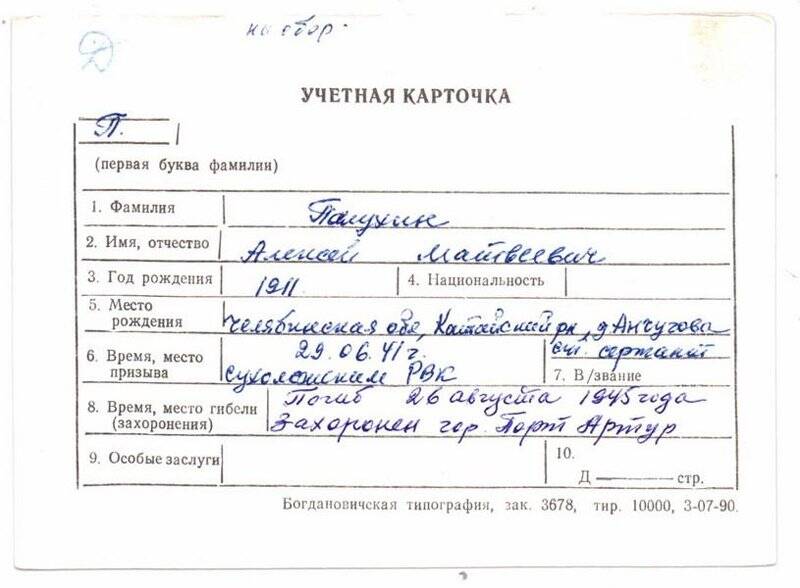 на обор.
УЧЕТНАЯ КАРТОЧКА
П.
(первая буква фамилии)
1. Фамилия Палухин
2. Имя, отчество Алексей Матвеевич
3. Год рождения 1911. 4. Национальность
5. Место рождения Челябинская обл, Катайский рн, д Анчугова
6. Время, место призыва 29.06.41 г. Сухоложским РВК
ст. сержант
7. В/звание
8. Время, место гибели (захоронения) Погиб 26 августа 1945 года
Захоронен гор. Порт Артур
9. Особые заслуги
10.
Д ——— стр.
Богдановичская типография, зак. 3678, тир. 10000, 3-07-90.